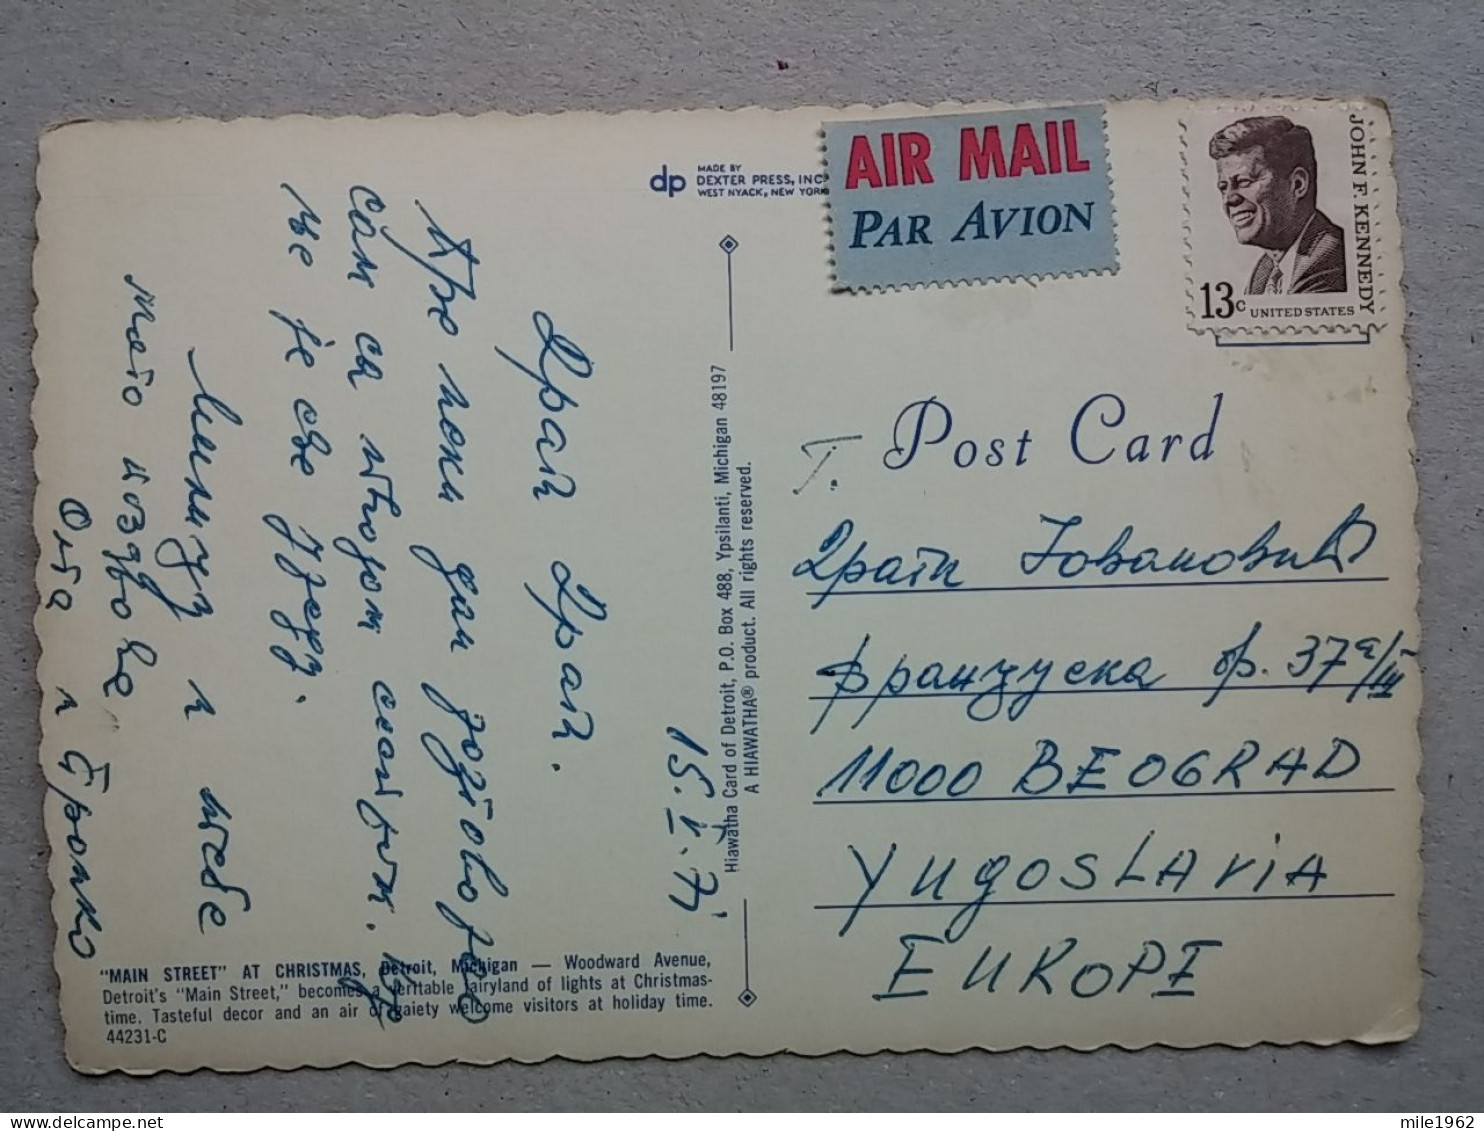 dp
MADE BY
DEXTER PRESS, INC.
WEST NYACK, NEW YORK
AIR MAIL
PAR AVION
JOHN F. KENNEDY
13c UNITED STATES
Post Card
15. V. 71
Драги Драги.
Пре неки дан разговарао
сам са твојом
ме је све
Много
мало поздрава
Ота и Бранко
Г.
Драги Јовановић
Француска бр. 37а/III
11000 BEOGRAD
YUGOSLAVIA
EUROPE
Hiawatha Card of Detroit, P.O. Box 488, Ypsilanti, Michigan 48197
A HIAWATHA® product. All rights reserved.
"MAIN STREET" AT CHRISTMAS, Detroit, Michigan — Woodward Avenue,
Detroit's "Main Street," becomes a veritable fairyland of lights at Christmas-
time. Tasteful decor and an air of gaiety welcome visitors at holiday time.
44231-C
mile1962